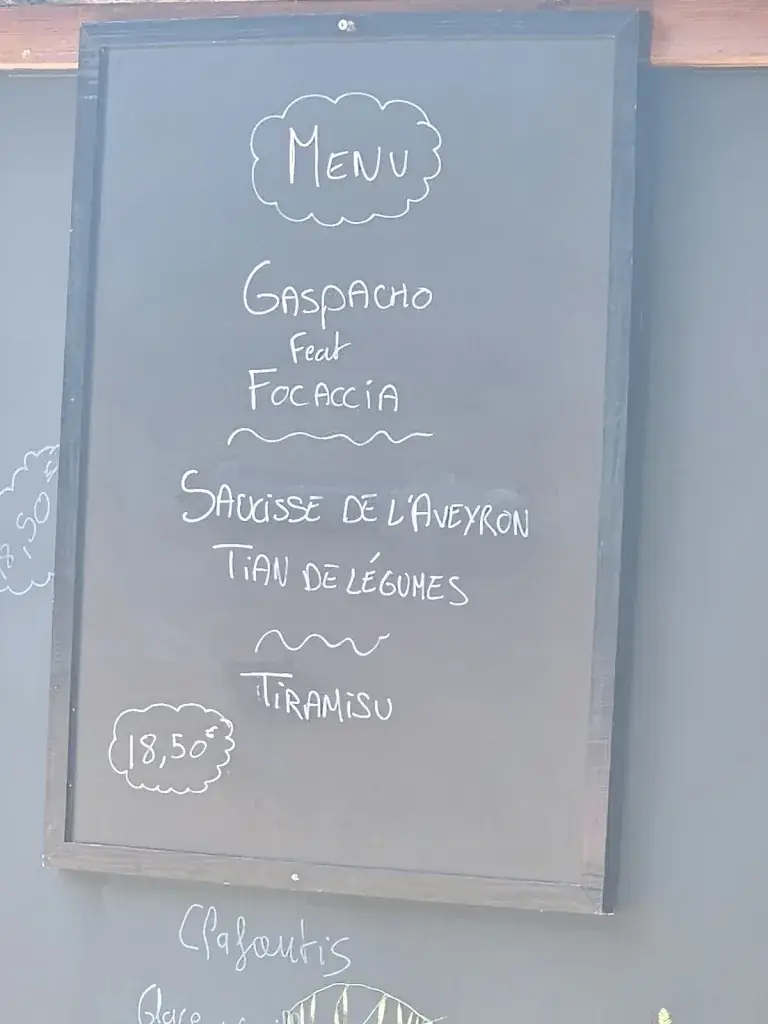 MENU
GASPACHO
Feat
FOCACCIA
SAUCISSE DE L'AVEYRON
TIAN DE LÉGUMES
TIRAMISU
18,50€
8,50€
Clafoutis
Glace